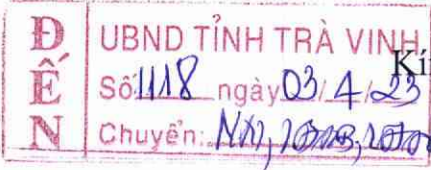 ĐẾN
UBND TỈNH TRÀ VINH
Kí
Số 1118 ngày 03/4/23
Chuyển: NN,